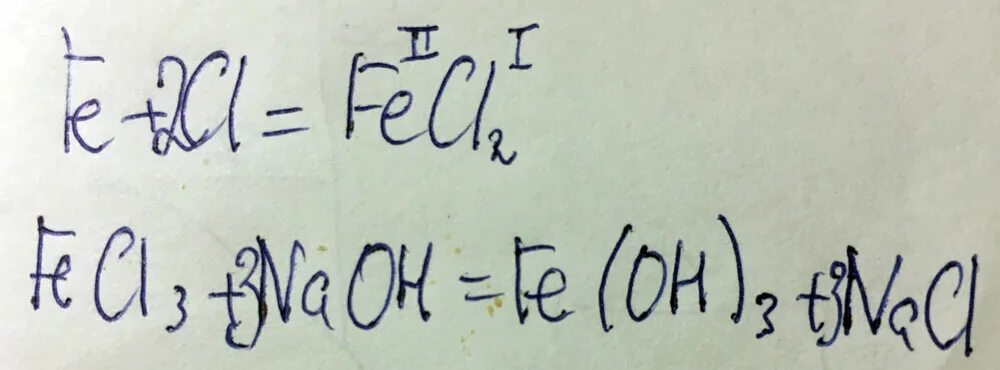 Fe + 2Cl = Fe^II Cl₂^I
FeCl₃ + 3NaOH = Fe(OH)₃ + 3NaCl